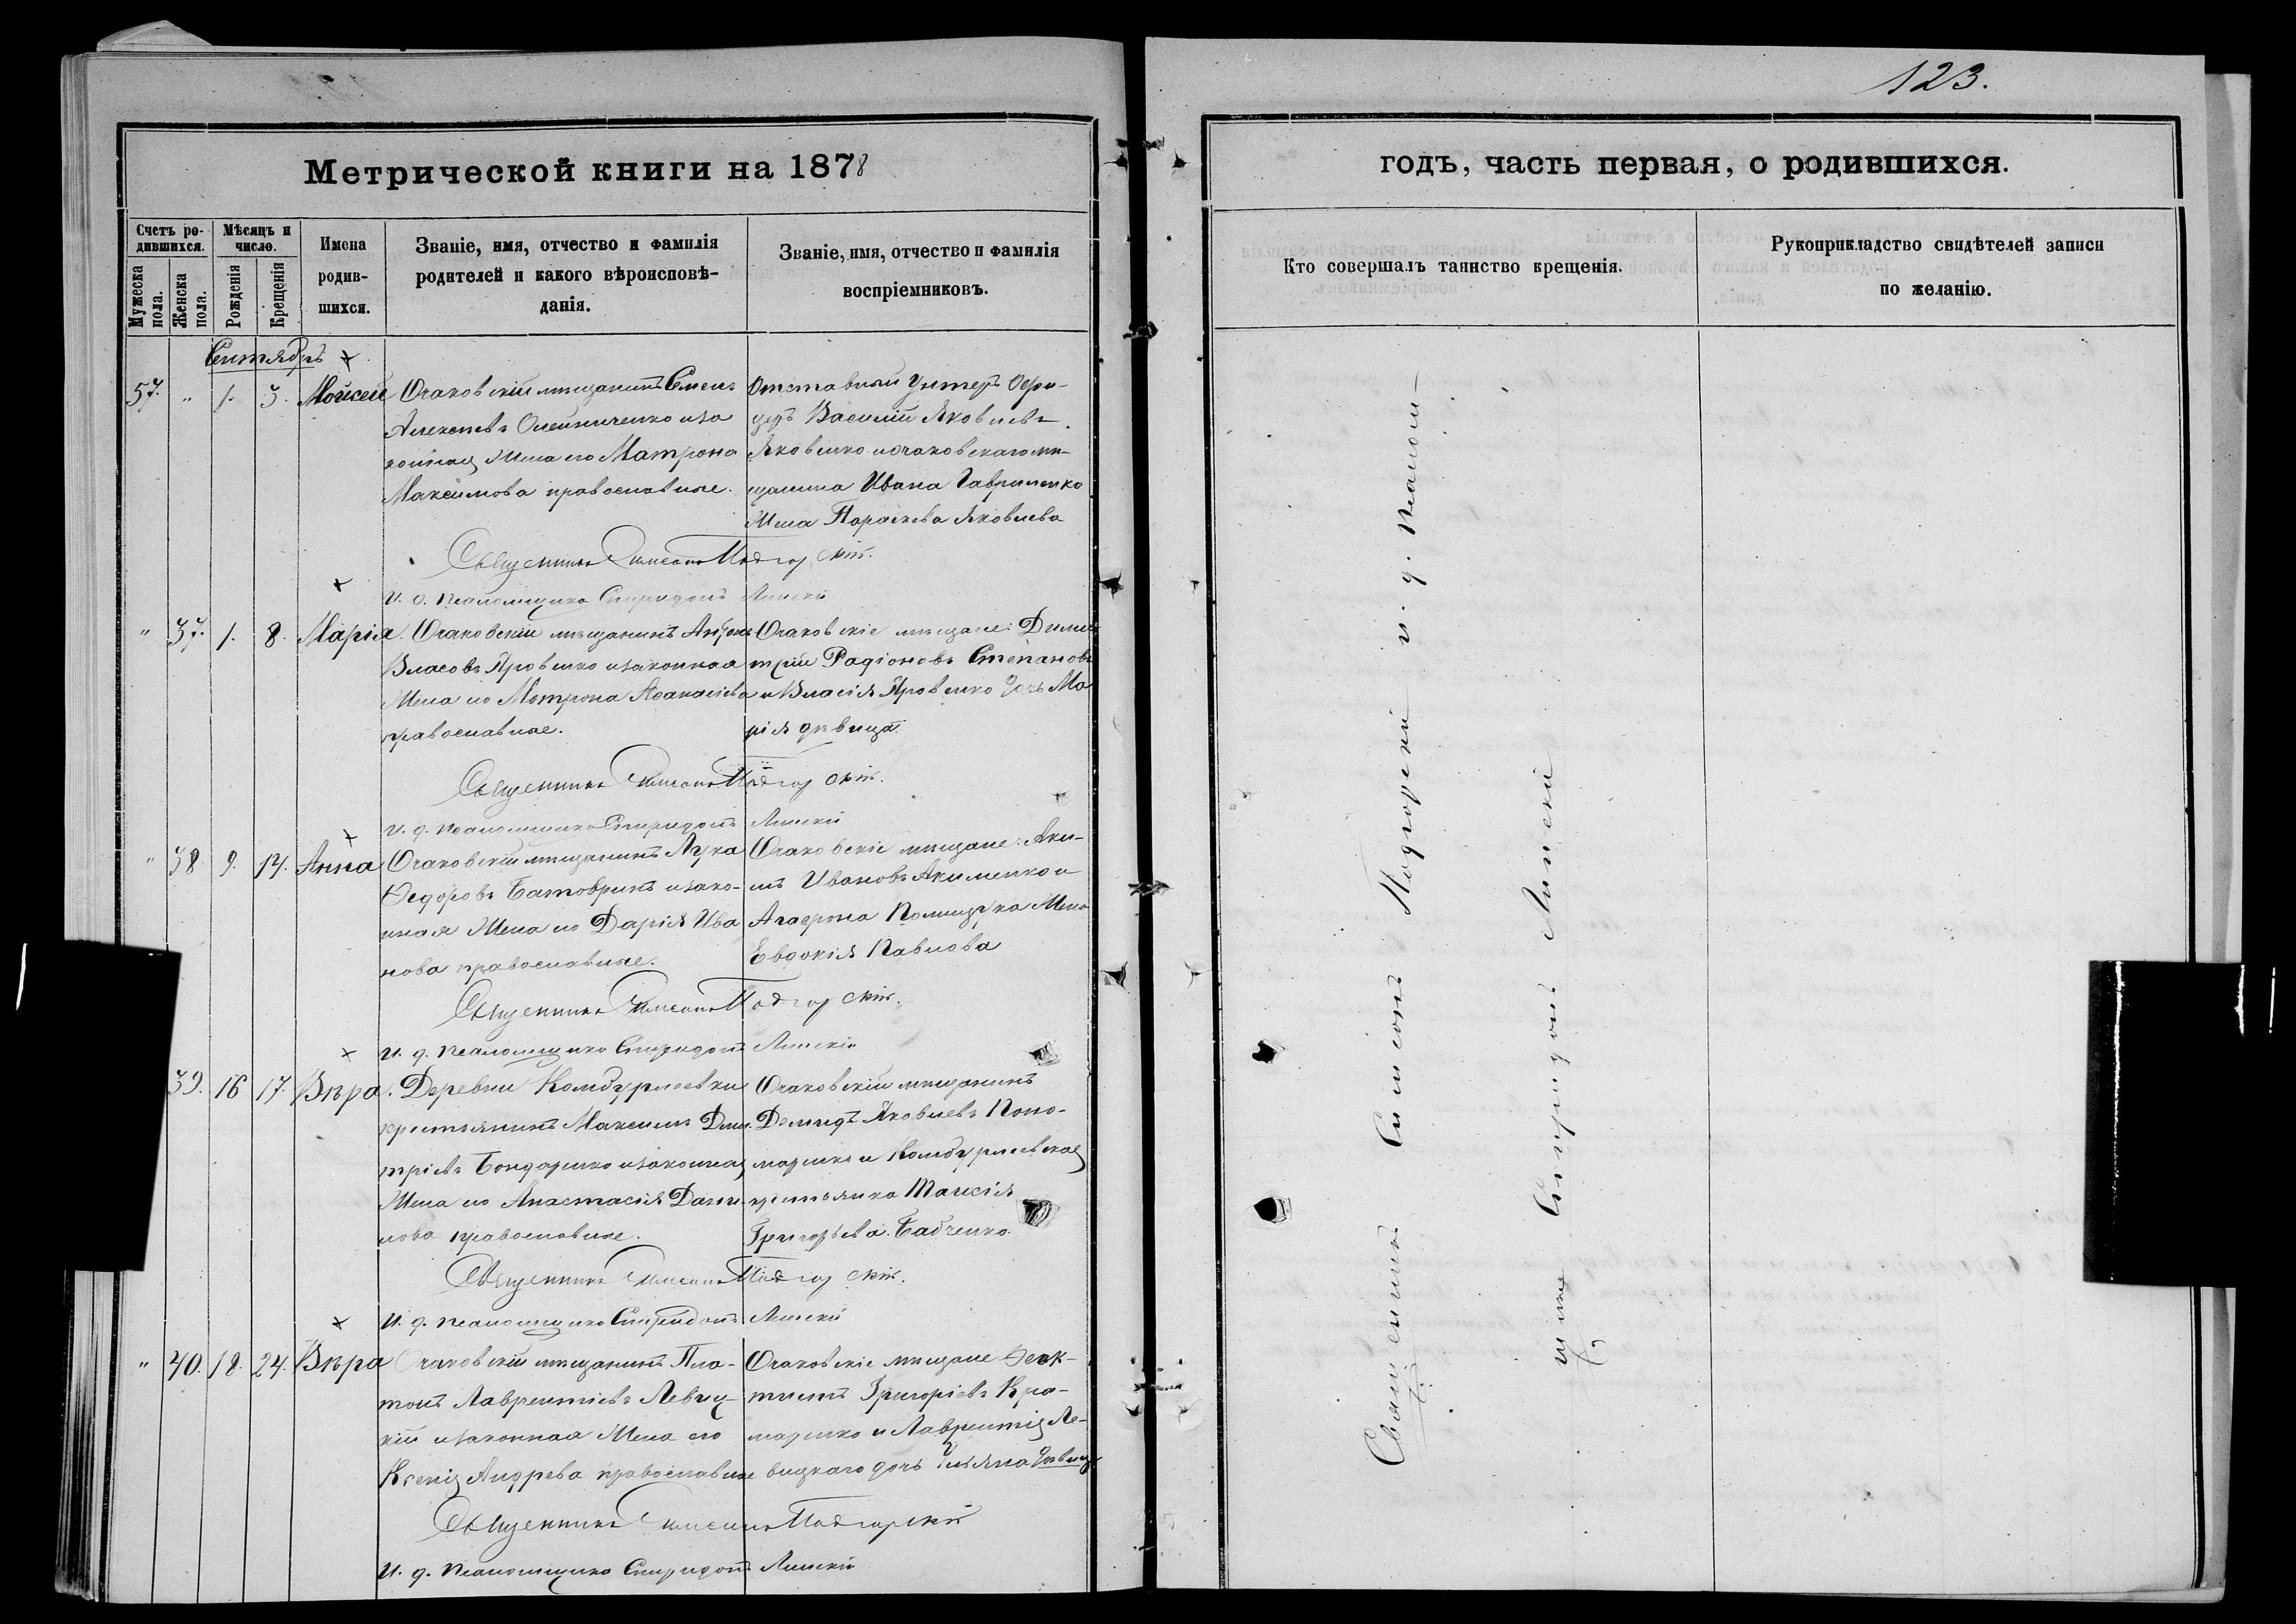 123.
Метрической книги на 1878
годъ, часть первая, о родившихся.
Счетъ ро-
дившихся.
Мѣсяцъ и
число.
Мужеска
пола.
Женска
пола.
Рожденія
Крещенія
Имена
родив-
шихся.
Званіе, имя, отчество и фамилія
родителей и какого вѣроисповѣ-
данія.
Званіе, имя, отчество и фамилія
воспріемниковъ.
Кто совершалъ таинство крещенія.
Рукоприкладство свидѣтелей записи
по желанію.
Сентябрь
57. " 1. 3. Мойсей
Очаковскій мещанинъ Семенъ
Алексѣевъ Олейниченко и за
конная жена его Матрона
Максимова православные.
Отставный Унтеръ Офи-
церъ Василій Яковлевъ
Яковенко и очаковскаго мѣ-
щанина Ивана Гавриленко
жена Параскева Яковлева
Священникъ Симеонъ Подгорскій.
И. д. псаломщика Спиридонъ Липскій
" 37. 1. 8. Марія.
Очаковскій мѣщанинъ Антонъ
Власовъ Яровенко и законная
жена его Матрона Афанасіева
православные.
Очаковскіе мѣщане: Дими
трій Радіоновъ Степановъ
и Власія Яровенко дочь Ма
рія дѣвица
Священникъ Симеонъ Подгорскій.
И. д. псаломщика Спиридонъ Липскій
" 38. 9. 14. Анна
Очаковскій мѣщанинъ Лука
Ѳедоровъ Батовринъ и зако-
нная жена его Дарія Ива
нова православные.
Очаковскіе мѣщане: Аки-
мъ Ивановъ Акименко и
Агафона Полищука жена
Евдокія Павлова
Священникъ Симеонъ Подгорскій.
И. д. псаломщика Спиридонъ Липскій
39. 16 17. Вѣра.
Деревни
крестьянинъ Максимъ Дми
тріевъ Бондаренко и законная
жена его Анастасія Дани
лова православные.
Очаковскій мѣщанинъ
Демидъ Яковлевъ Поно-
маренко и
крестьянка Таисія
Григорьева Бабченко.
Священникъ Симеонъ Подгорскій.
И. д. псаломщика Спиридонъ Липскій
" 40. 18. 24. Вѣра
Очаковскій мѣщанинъ Пла-
тонъ Лаврентіевъ Левиц-
кій и законная жена его
Ксенія Андрева православные
Очаковскіе мѣщане Ѳеок-
тистъ Григоріевъ Кра-
маренко и Лаврентія Ле-
вицкаго дочь Ульяна дѣвица
Священникъ Симеонъ Подгорскій
И. д. псаломщика Спиридонъ Липскій
Священникъ Симеонъ Подгорскій и. д. псалом-
щика Спиридонъ Липскій